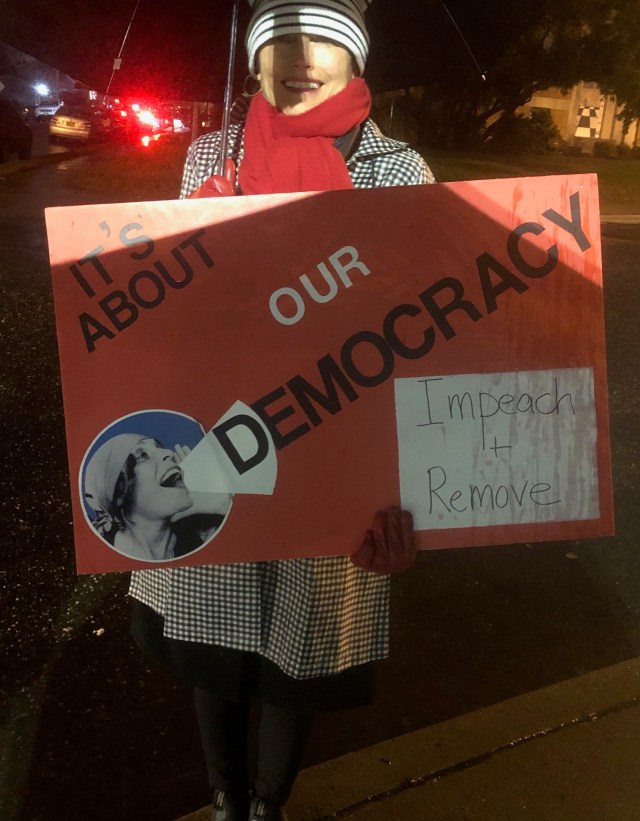 IT'S
ABOUT
OUR
DEMOCRACY
Impeach
+
Remove